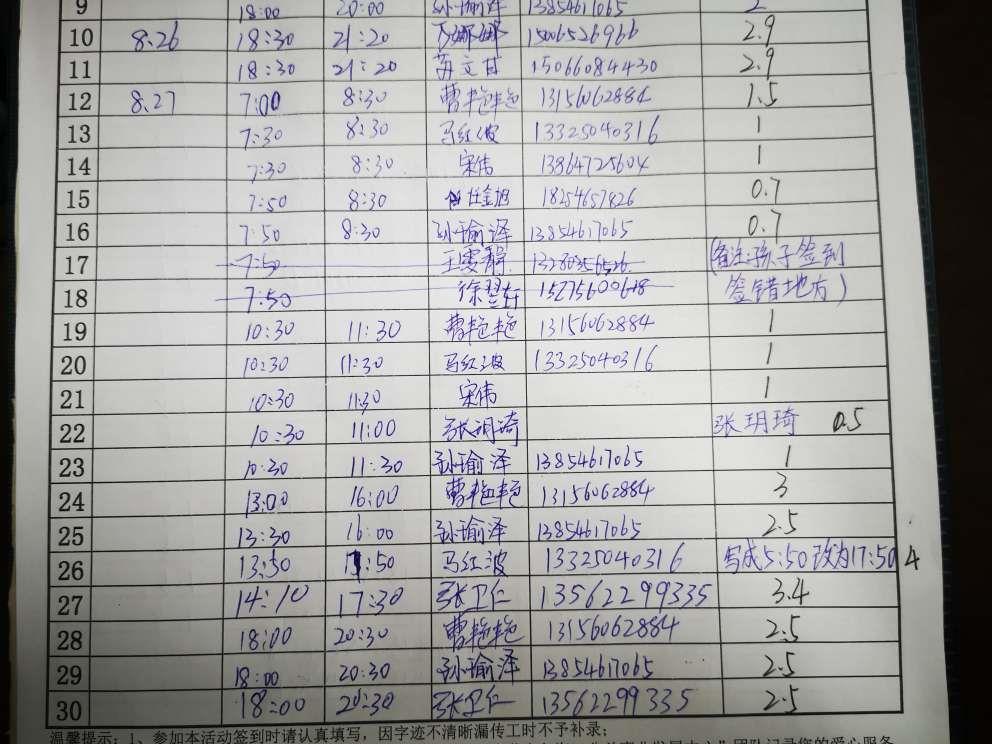 9 18:00 20:00 孙瑜泽 13854617065 2
10 8.26 18:30 21:20 娜娜 15065526966 2.9
11 18:30 21:20 苏文甘 15066084430 2.9
12 8.27 7:00 8:30 曹艳艳 13156062884 1.5
13 7:30 8:30 马红波 13325040316 1
14 7:30 8:30 宋伟 13864725604 1
15 7:50 8:30 任金旭 18254657826 0.7
16 7:50 8:30 孙瑜泽 13854617065 0.7
17 7:50 王雯静 13280356526 (备注:孩子签到
18 7:50 徐翌轩 15275600618 签错地方)
19 10:30 11:30 曹艳艳 13156062884 1
20 10:30 11:30 马红波 13325040316 1
21 10:30 11:30 宋伟 1
22 10:30 11:00 张玥琦 张玥琦 0.5
23 10:30 11:30 孙瑜泽 13854617065 1
24 13:00 16:00 曹艳艳 13156062884 3
25 13:30 16:00 孙瑜泽 13854617065 2.5
26 13:50 17:50 马红波 13325040316 写成5:50改为17:50 4
27 14:10 17:30 张卫仁 13562299335 3.4
28 18:00 20:30 曹艳艳 13156062884 2.5
29 18:00 20:30 孙瑜泽 13854617065 2.5
30 18:00 20:30 张卫仁 13562299335 2.5
温馨提示:1、参加本活动签到时请认真填写,因字迹不清晰漏传工时不予补录;